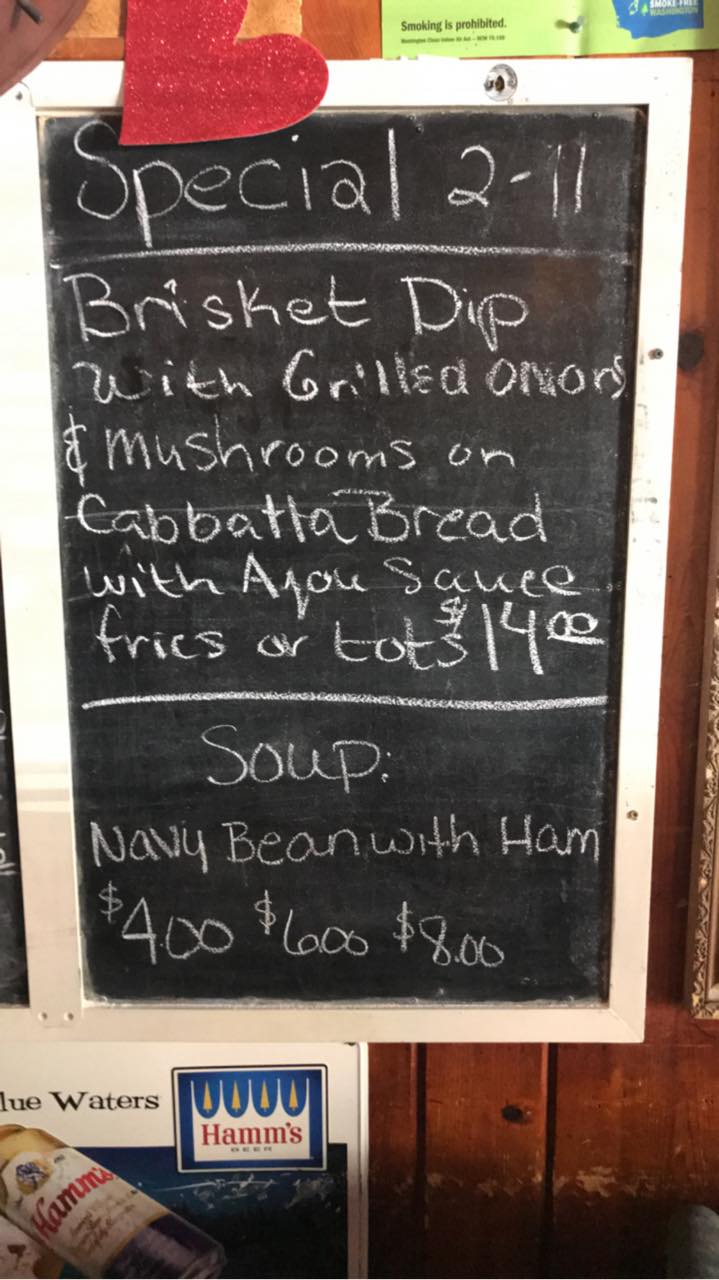 Smoking is prohibited.
SMOKE-FREE
WASHINGTON
Special 2-11
Brisket Dip
with Grilled Onions
& Mushrooms on
Cabbatta Bread
with Ajou Sauce
fries or tots $14.00
Soup:
Navy Bean with Ham
$4.00 $6.00 $8.00
lue Waters
Hamm's
BEER
Hamm's